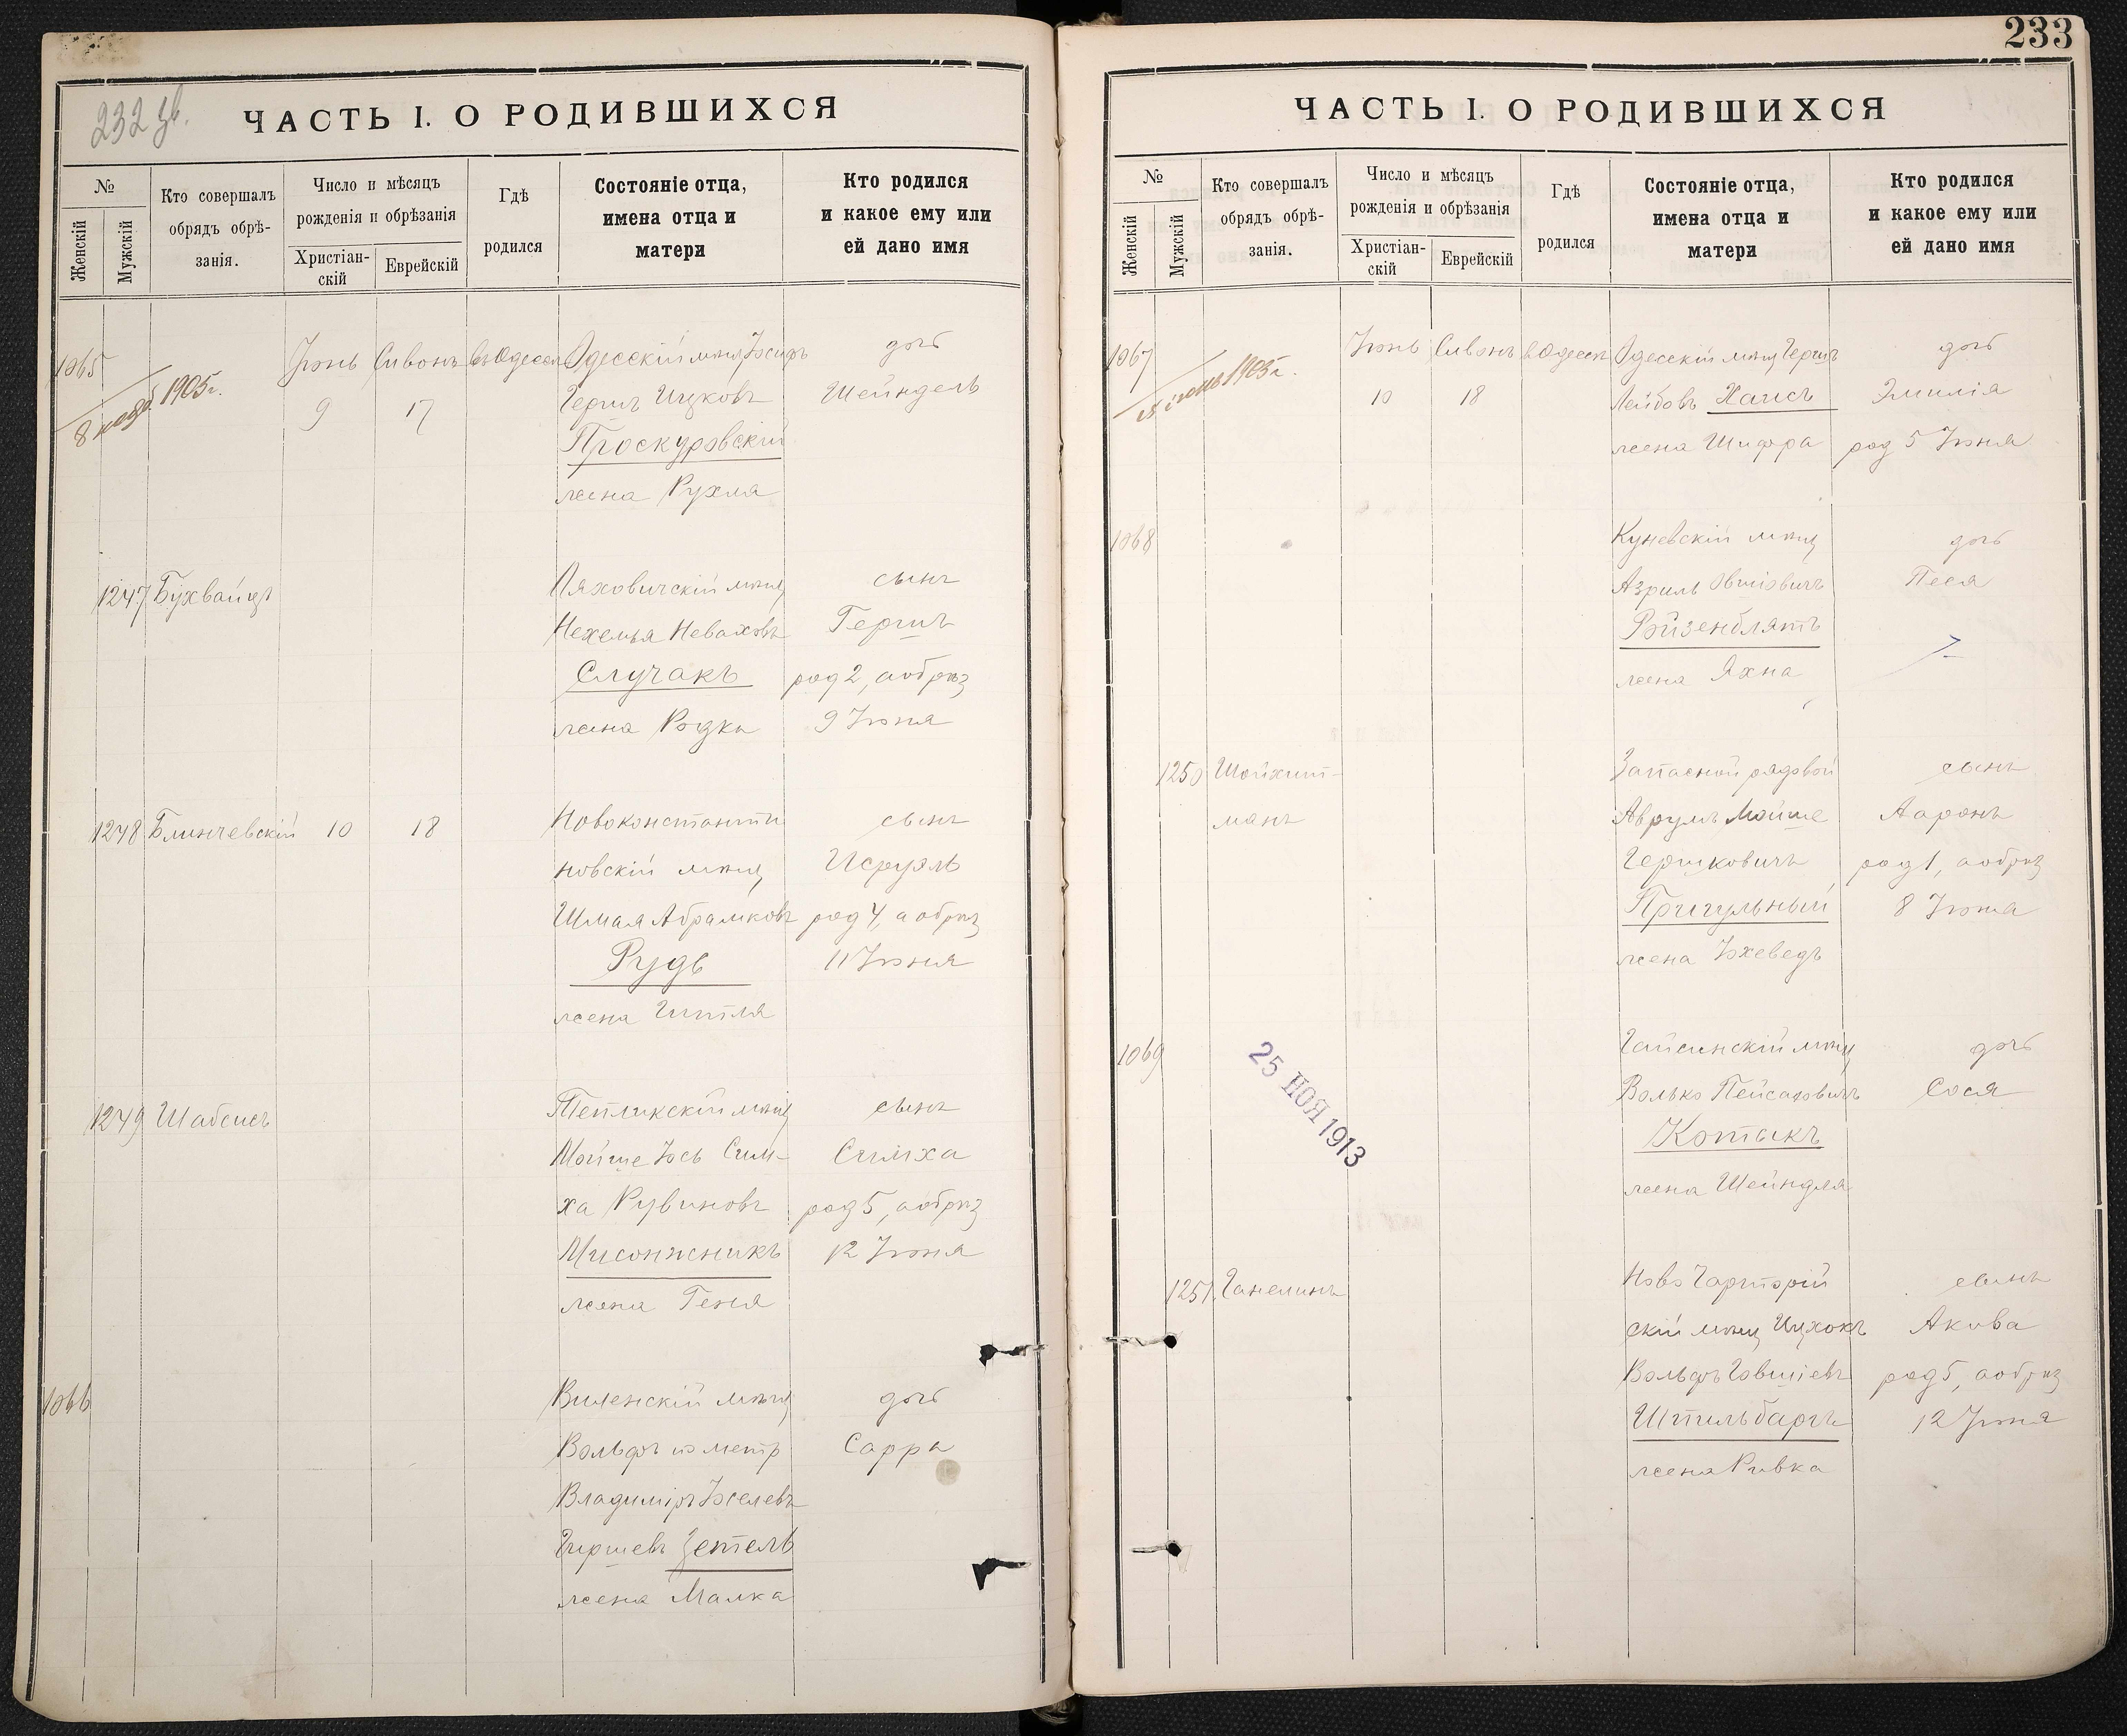 232 зв.
ЧАСТЬ I. О РОДИВШИХСЯ
№
Женскій
Мужскій
Кто совершалъ
обрядъ обрѣ-
занія.
Число и мѣсяцъ
рожденія и обрѣзанія
Христіан-
скій
Еврейскій
Гдѣ
родился
Состояніе отца,
имена отца и
матери
Кто родился
и какое ему или
ей дано имя
1065
8 1905 г.
Іюнь Сивонъ въ Одессѣ Одесскій мѣщ Іосифъ дочь
9 17 Гершъ Ицковъ Шейндель
Проскуровскій
жена Рухля
1247 Бухвайцъ Ляховичскій мѣщ сынъ
Нехемья Неваховъ Гершъ
Случакъ род 2, а обрѣз
жена 9 Іюня
1248 Блинчевскій 10 18 Новоконстанти сынъ
новскій мѣщ Исруэль
Шмая Абрамковъ род 4, а обрѣз
Рудь 11 Іюня
жена Гитля
1249 Шабсисъ Тепликскій мѣщ сынъ
Мойше Іось Сим- Симха
ха Рувиновъ род 5, а обрѣз
Мисонжникъ 12 Іюня
жена Геня
1066 Виленскій мѣщ дочь
Вольфъ по метр Сарра
Владиміръ Іоселевъ
Гиршевъ Зетель
жена Малка
233
ЧАСТЬ I. О РОДИВШИХСЯ
№
Женскій
Мужскій
Кто совершалъ
обрядъ обрѣ-
занія.
Число и мѣсяцъ
рожденія и обрѣзанія
Христіан-
скій
Еврейскій
Гдѣ
родился
Состояніе отца,
имена отца и
матери
Кто родился
и какое ему или
ей дано имя
1067
1905 г.
Іюнь Сивонъ в Одессѣ Одесскій мѣщ Гершъ дочь
10 18 Лейбовъ Хаисъ Эмилія
жена Шифра род 5 Іюня
1068 Куневскій мѣщ дочь
Азриль Овшіовичъ Песя
Ройзенблятъ
жена Яхна
1250 Шойхит- Запасной рядовой сынъ
манъ Аврумъ Мойше Ааронъ
Гершковичъ род 1, а обрѣз
Пригульный 8 Іюня
жена Іохеведъ
1069 Гайсинскій мѣщ дочь
25 НОЯ 1913
Волько Пейсаховичъ Сося
Котыкъ
жена Шейндля
1251 Ганелинъ Ново Чарторій сынъ
скій мѣщ Ицхокъ Акива
Вольфъ Говшіевъ род 5, а обрѣз
Штильбаръ 12 Іюня
жена Ривка